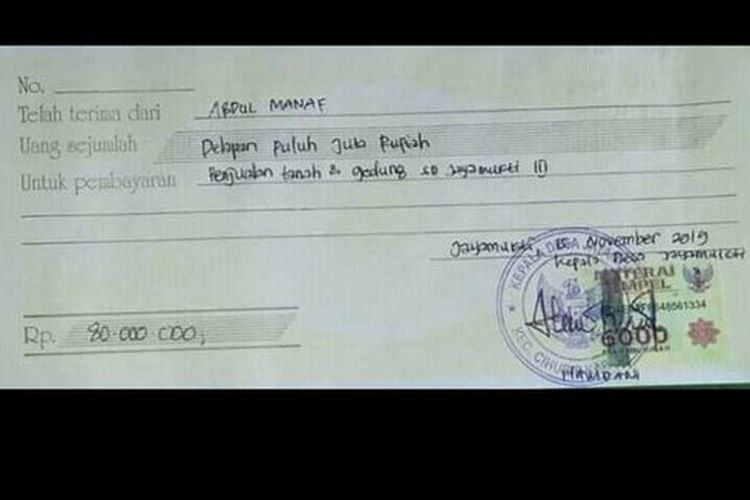 No.
Telah terima dari ABDUL MANAF
Uang sejumlah Delapan puluh Juta Rupiah
Untuk pembayaran Penjualan tanah & gedung SD Jayamukti III
Jayamukti, November 2019
Kepala Desa Jayamukti
KEPALA DESA
METERAI
TEMPEL
6000
KEC. CIHUR
Rp. 80.000 000,
HAMDANI